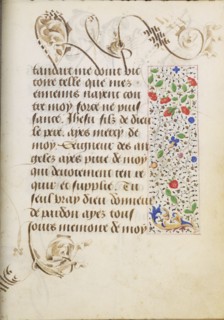 tandant me donit vic
toire telle que mes
ennemis nayent con
tre moy force ne puis
sance. Jhesu filz de dieu
le pere, ayes mercy de
moy. Seigneur des an
geles ayes pitie de moy
qui devotement ten re
quier et supplie. Tu
seul vray dieu donneur
de pardon ayes tous
jours memoire de moy